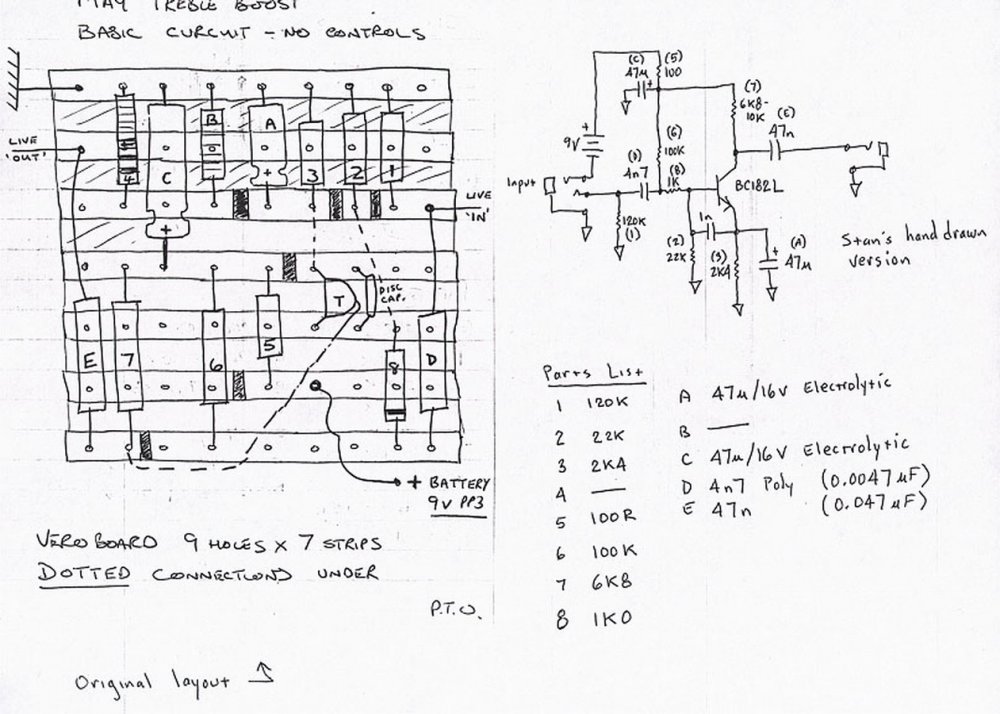 MAY TREBLE BOOST
BASIC CURCUIT - NO CONTROLS
LIVE
'OUT'
4
C
+
B
A
+
3
2
1
LIVE
'IN'
T
DISC
CAP.
E
7
6
5
8
D
+ BATTERY
9V PP3
VEROBOARD 9 HOLES X 7 STRIPS
DOTTED CONNECTIONS UNDER
P.T.O.
Original layout
(C)
47μ
+
(5)
100
(7)
6K8-
10K
(E)
47n
+
9V
(6)
100K
(D)
4n7
(8)
1K
Input
BC182L
120K
(1)
(2)
22K
1n
(3)
2K4
+
(A)
47μ
Stan's hand drawn
version
Parts List
1 120K
2 22K
3 2K4
4 —
5 100R
6 100K
7 6K8
8 1K0
A 47μ/16V Electrolytic
B —
C 47μ/16V Electrolytic
D 4n7 Poly (0.0047μF)
E 47n (0.047μF)